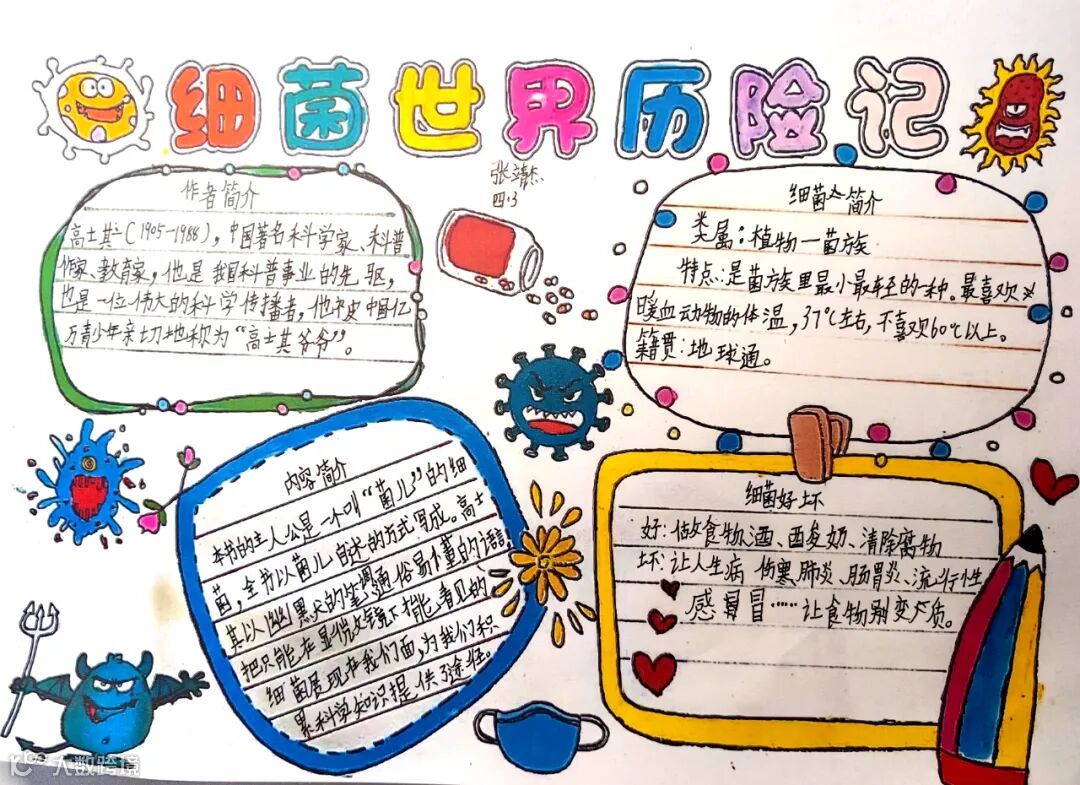 细菌世界历险记
张靖杰
四.3
作者简介
高士其(1905-1988),中国著名科学家、科普
作家、教育家,他是我国科普事业的先驱,
也是一位伟大的科学传播者,他 中国亿
万青少年亲切地称为“高士其爷爷”。
细菌简介
类属:植物—菌族
特点:是菌族里最小最轻的一种。最喜欢
暖血动物的体温,37℃左右,不喜欢60℃以上。
籍贯:地球通。
内容简介
本书的主人公是一个叫“菌儿”的细
菌,全书以菌儿自述的方式写成。高士
其以幽默的笔调通俗易懂的语言,
把只能在显微镜下才能看见的
细菌展现在我们面,为我们积
累科学知识提供了途径。
细菌好坏
好:做食物,酒、酉奶、清除腐物
坏:让人生病 伤寒,肺炎、肠胃炎、流行性
感冒……让食物变质。
大数跨境